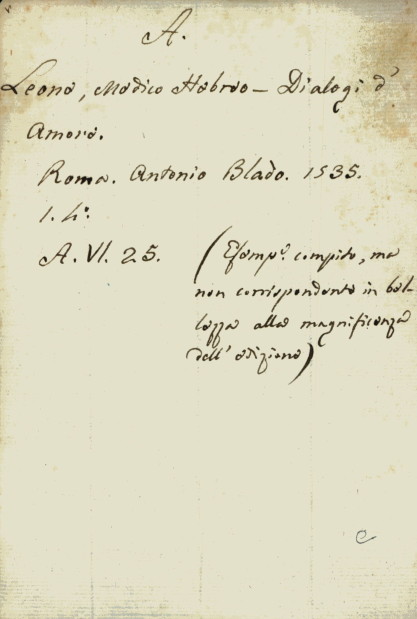 A.
Leone, Medico Hebreo – Dialogi d'
Amore.
Roma. Antonio Blado. 1535.
1. 4°.
A. VI. 25. (Esemp.e compito, ma
non corrispondente in bel-
lezza alla magnificenza
dell' edizione)
e